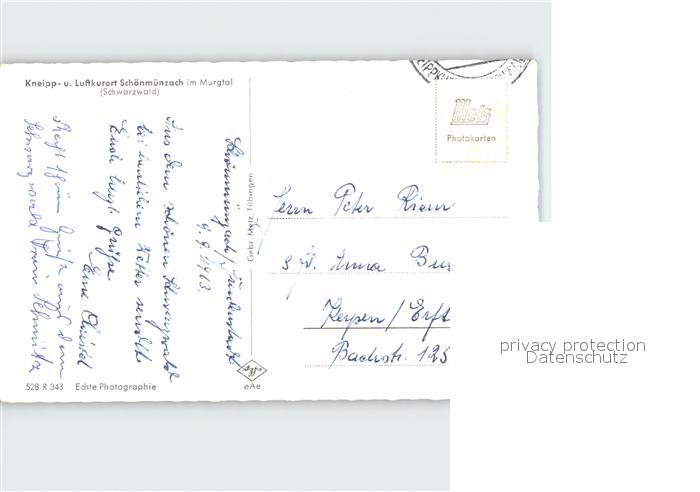 Kneipp- u. Luftkurort Schönmünzach im Murgtal
(Schwarzwald)
Schönmünzach/Freudenstadt
9. 9. 1963.
Aus dem schönen Schwarzwald
bei herrlichem Wetter sendet
Euch hrzl. Grüße
Eure
Recht schöne Grüße aus dem
Schwarzwald Frau Schmitz
528 R 343 Echte Photographie
Gebr. Metz, Tübingen
eAe
Metz
Photokarten
Herrn Peter
Anna
Kerpen/Erft
Bachstr. 125
privacy protection
Datenschutz